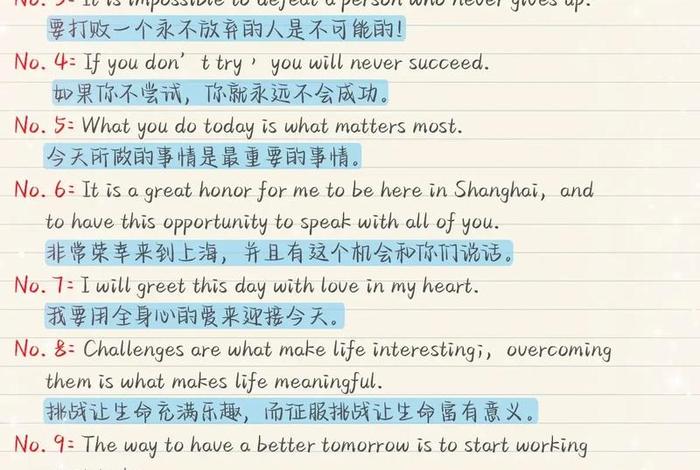 No. 3: It is impossible to defeat a person who never gives up.
要打败一个永不放弃的人是不可能的!
No. 4: If you don't try, you will never succeed.
如果你不尝试，你就永远不会成功。
No. 5: What you do today is what matters most.
今天所做的事情是最重要的事情。
No. 6: It is a great honor for me to be here in Shanghai, and
to have this opportunity to speak with all of you.
非常荣幸来到上海，并且有这个机会和你们说话。
No. 7: I will greet this day with love in my heart.
我要用全身心的爱来迎接今天。
No. 8: Challenges are what make life interesting;, overcoming
them is what makes life meaningful.
挑战让生命充满乐趣，而征服挑战让生命富有意义。
No. 9: The way to have a better tomorrow is to start working